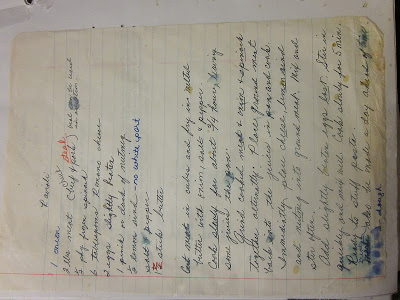 Ravioli
1 onion
2 lbs meat (beef & pork) or veal
1 pkg frozen spinach
6 tablespoons Romano cheese
2 eggs slightly beaten
1 pinch or dash of nutmeg
1 lemon rind - no white part
salt & pepper
1 stick butter
Cut meat in cubes and fry in melted
butter with onion, salt & pepper.
Cook slowly for about 3/4 hour, having
some juice in the pan.
Grind cooked meat & onion & spinach
together actually. Place ground meat
back into the juices in pan and cook.
Immediately place cheese, lemon rind
and nutmeg into ground meat. Mix and
stir often.
Add slightly beaten eggs last. Stir in
quickly and mix well. Cook slowly for 5 min.
Ready to stuff paste.
made a day
dough